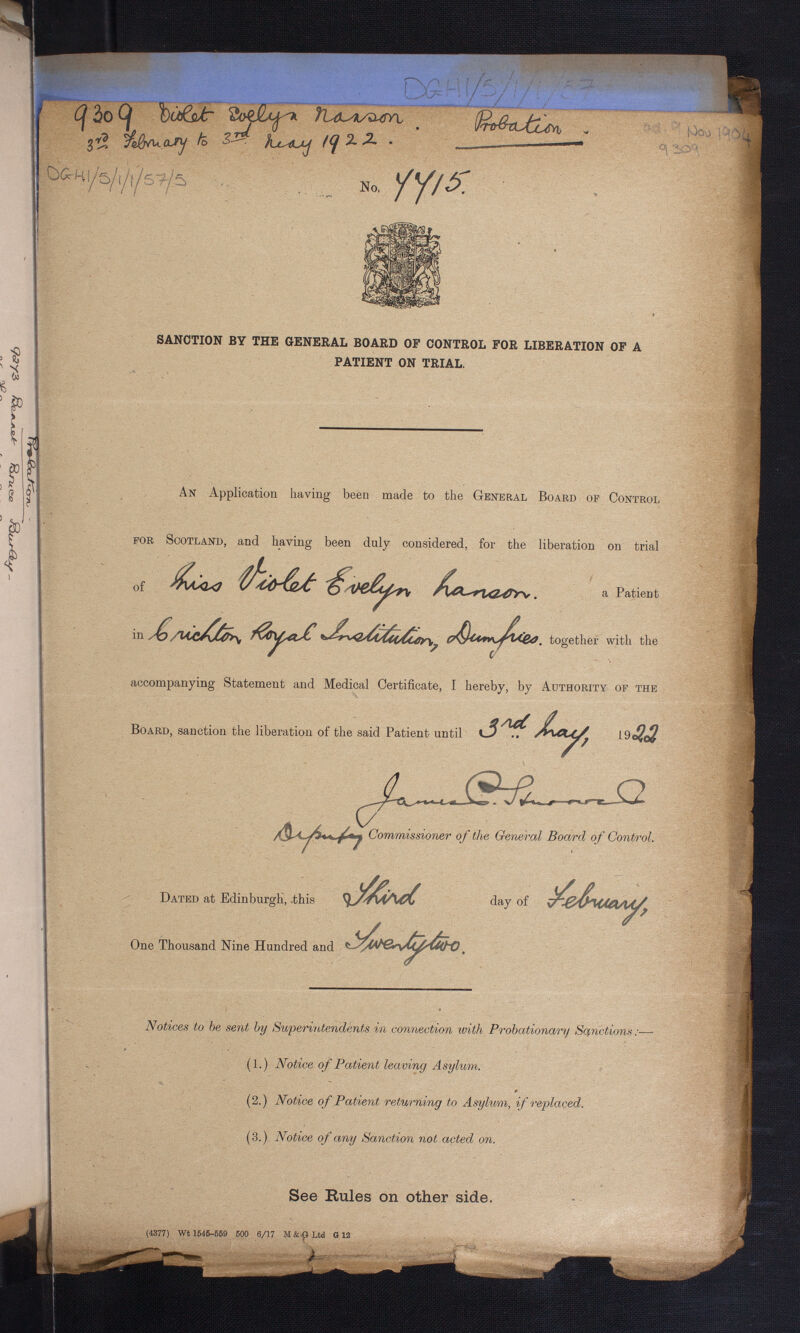 DGH1/5/1/1/57
9309 Violet Evelyn Nanson. Probation.
3rd February to 3rd May 1922.
ad. 9 Nov 1904
9309
DGH1/5/1/1/57/5
No. 4415.
SANCTION BY THE GENERAL BOARD OF CONTROL FOR LIBERATION OF A
PATIENT ON TRIAL.
AN Application having been made to the GENERAL BOARD OF CONTROL
FOR SCOTLAND, and having been duly considered, for the liberation on trial
of Miss Violet Evelyn Nanson. a Patient
in Crichton Royal Institution, Dumfries. together with the
accompanying Statement and Medical Certificate, I hereby, by AUTHORITY OF THE
BOARD, sanction the liberation of the said Patient until 3rd May, 1922
James C.
Deputy Commissioner of the General Board of Control.
DATED at Edinburgh, this Third day of February,
One Thousand Nine Hundred and Twenty two.
Notices to be sent by Superintendents in connection with Probationary Sanctions:—
(1.) Notice of Patient leaving Asylum.
(2.) Notice of Patient returning to Asylum, if replaced.
(3.) Notice of any Sanction not acted on.
See Rules on other side.
(4377) Wt 1545-559 500 6/17 M & G Ltd G 12
Probation.
Bennet Bruce Burley